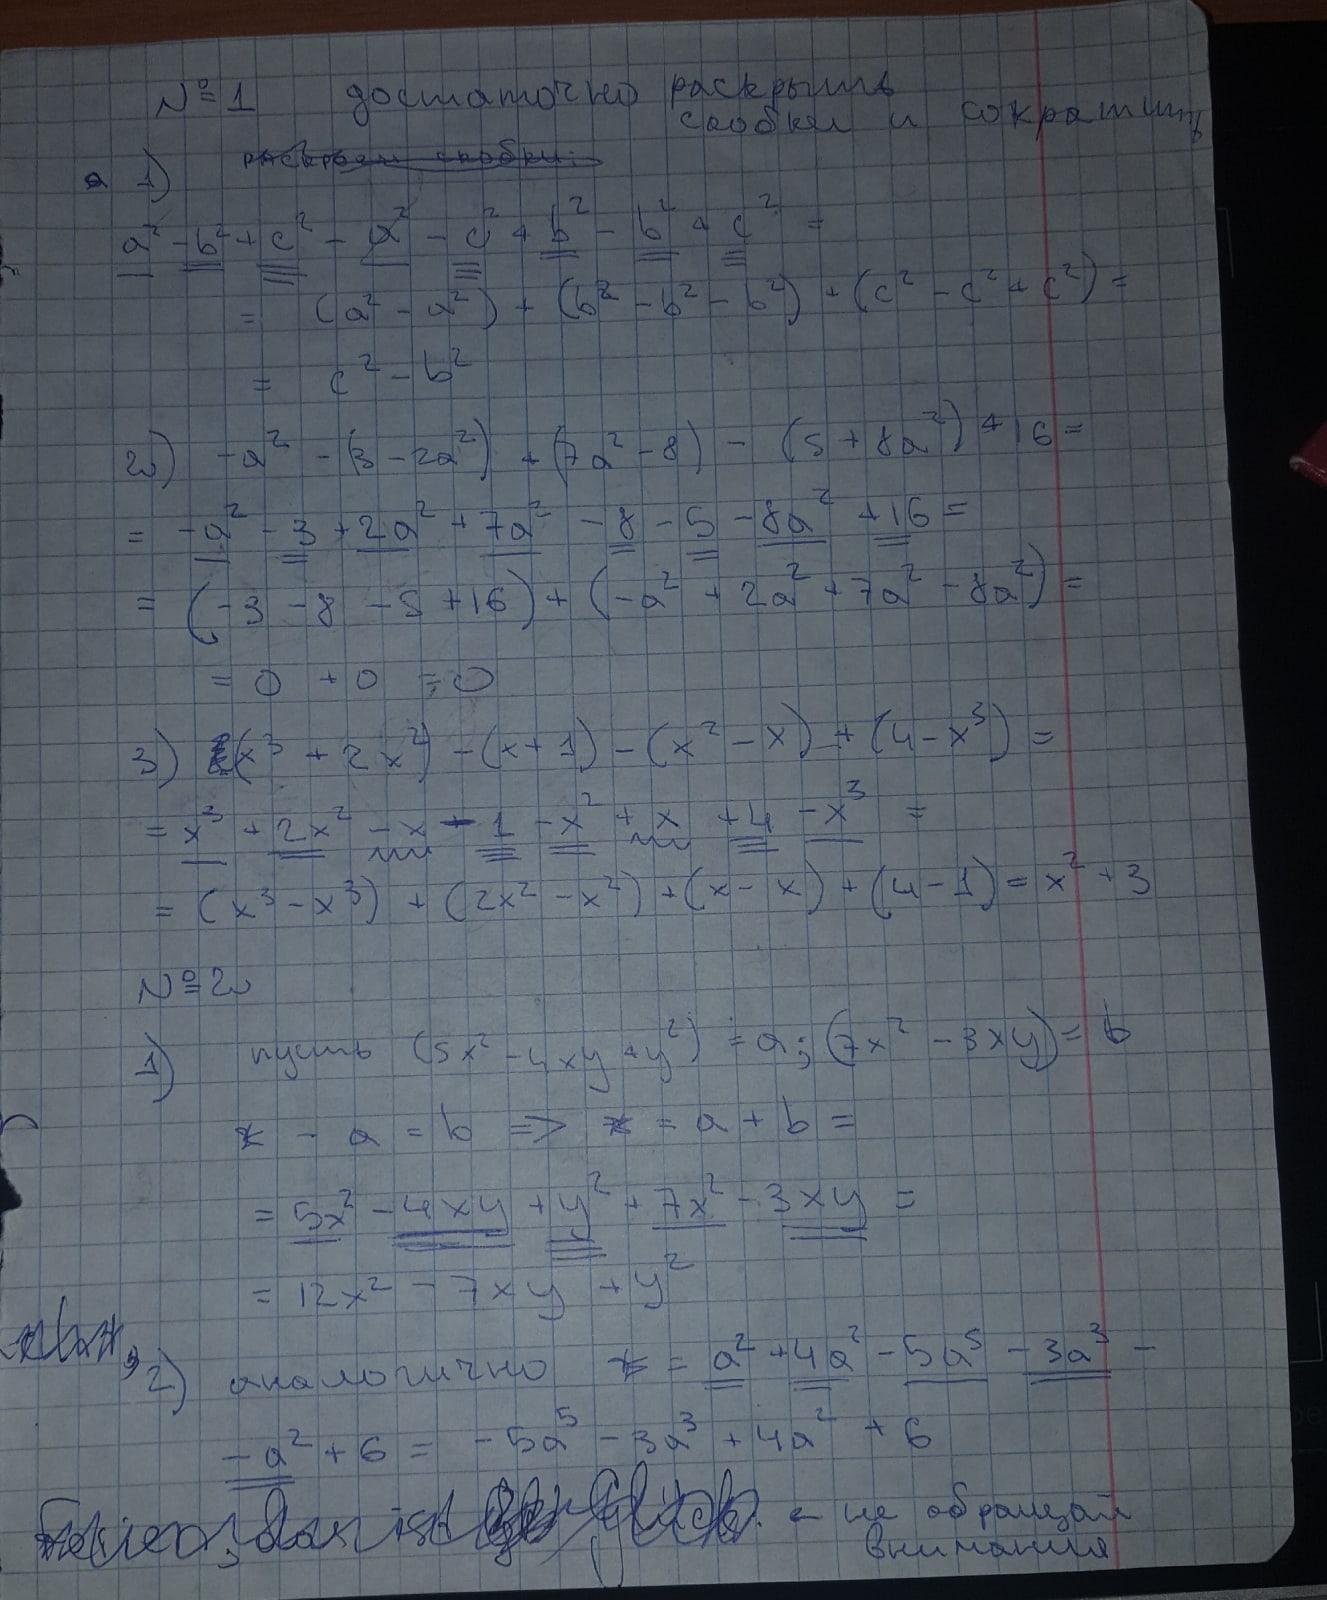 №1 достаточно раскрыть
скобки и сократить
1)
a² - b² + c² - a² - c² + b² - b² + c² =
= (a² - a²) + (b² - b² - b²) + (c² - c² + c²) =
= c² - b²
2) -a² - (3 - 2a²) + (7a² - 8) - (5 + 8a²) + 16 =
= -a² - 3 + 2a² + 7a² - 8 - 5 - 8a² + 16 =
= (-3 - 8 - 5 + 16) + (-a² + 2a² + 7a² - 8a²) =
= 0 + 0 = 0
3) (x³ + 2x²) - (x + 1) - (x² - x) + (4 - x³) =
= x³ + 2x² - x - 1 - x² + x + 4 - x³ =
= (x³ - x³) + (2x² - x²) + (x - x) + (4 - 1) = x² + 3
№2
1) пусть (5x² - 4xy + y²) = a; (7x² - 3xy) = b
* - a = b => * = a + b =
= 5x² - 4xy + y² + 7x² - 3xy =
= 12x² - 7xy + y²
2) аналогично * = a² + 4a² - 5a⁵ - 3a³ -
- a² + 6 = - 5a⁵ - 3a³ + 4a² + 6
← не обращай
внимания